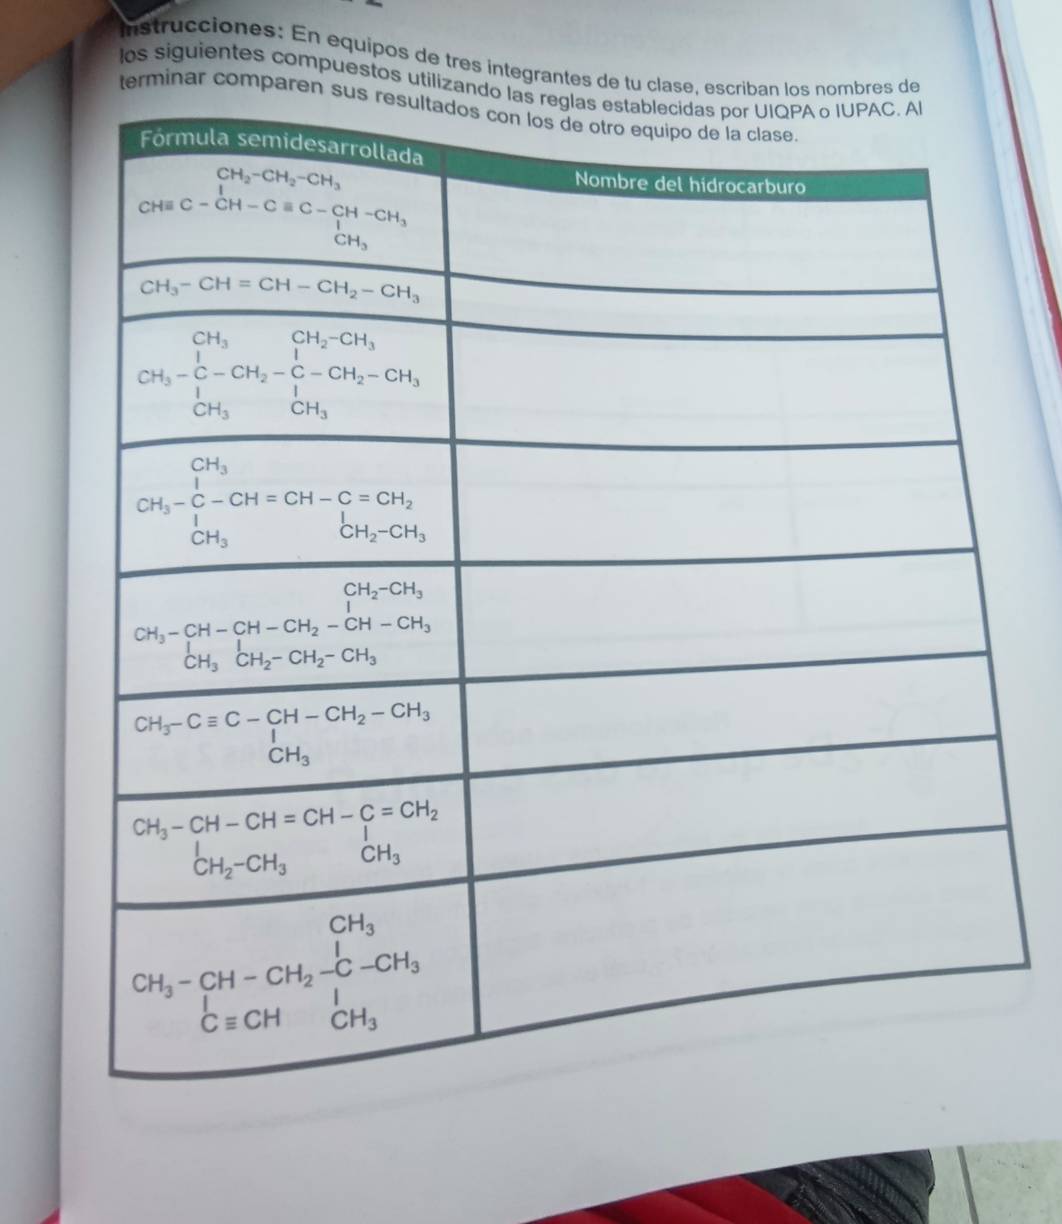 Instrucciones: En equipos de tres integrantes de tu clase, escriban los nombres de
los siguientes compuestos utilizando las reglas establecidas por UIQPA o IUPAC. Al
terminar comparen sus resultados con los de otro equipo de la clase.
Fórmula semidesarrollada
Nombre del hidrocarburo
CH₂-CH₂-CH₃
CH≡C - CH - C ≡ C - CH -CH₃
CH₃
CH₃- CH = CH - CH₂ - CH₃
CH₃ CH₂-CH₃
CH₃ - C - CH₂ - C - CH₂ - CH₃
CH₃ CH₃
CH₃
CH₃ - C - CH = CH - C = CH₂
CH₃ CH₂-CH₃
CH₂-CH₃
CH₃ - CH - CH - CH₂ - CH - CH₃
CH₃ CH₂- CH₂- CH₃
CH₃- C ≡ C - CH - CH₂ - CH₃
CH₃
CH₃ - CH - CH = CH - C = CH₂
CH₂-CH₃ CH₃
CH₃
CH₃ - CH - CH₂ -C -CH₃
C ≡ CH CH₃